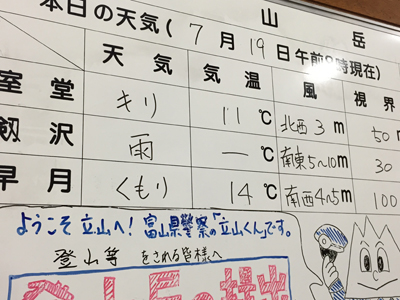 山岳
本日の天気(7月19日午前8時現在)
天気 気温 風 視界
室堂 キリ 11℃ 北西3m 50m
剱沢 雨 ー℃ 南東5~10m 30
早月 くもり 14℃ 南西4~5m 100
ようこそ立山へ!富山県警察の「立山くん」です。
登山等をされる皆様へ